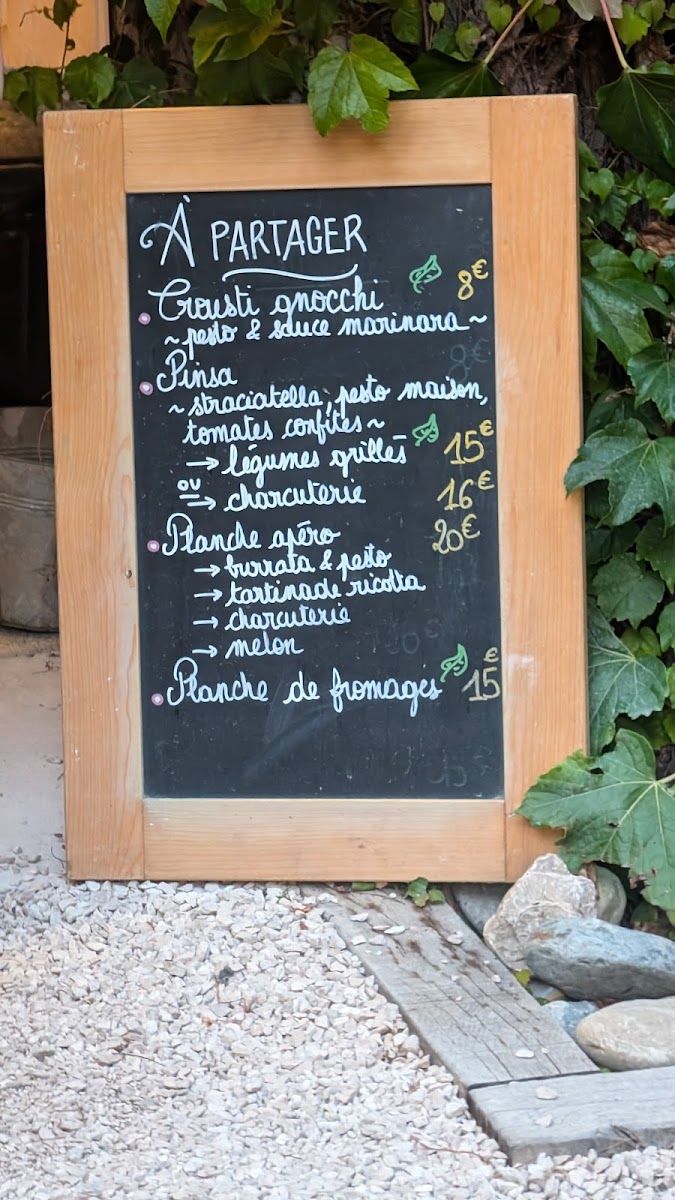 À PARTAGER
Crousti gnocchi 8€
~ pesto & sauce marinara ~
Pinsa
~ straciatella, pesto maison,
tomates confites ~
→ légumes grillés 15€
ou
→ charcuterie 16€
Planche apéro 20€
→ burrata & pesto
→ tartinade ricotta
→ charcuterie
→ melon
Planche de fromages 15€